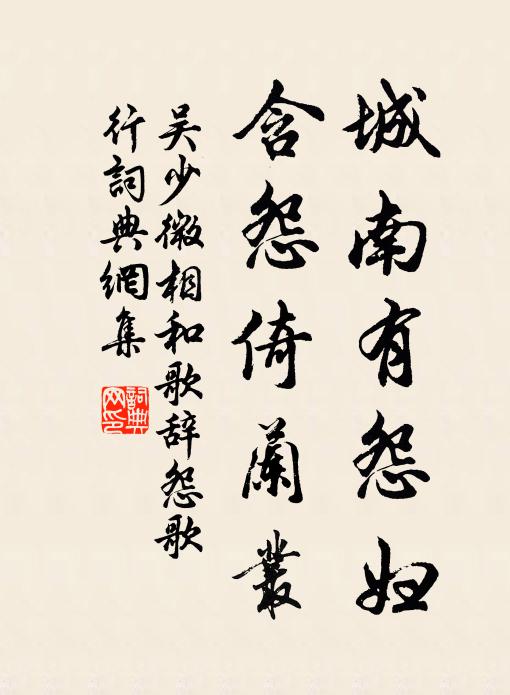 城南有怨妇
含怨倚蘭叢
吴少微相和歌辞怨歌
行詞典網集
詞典
网印